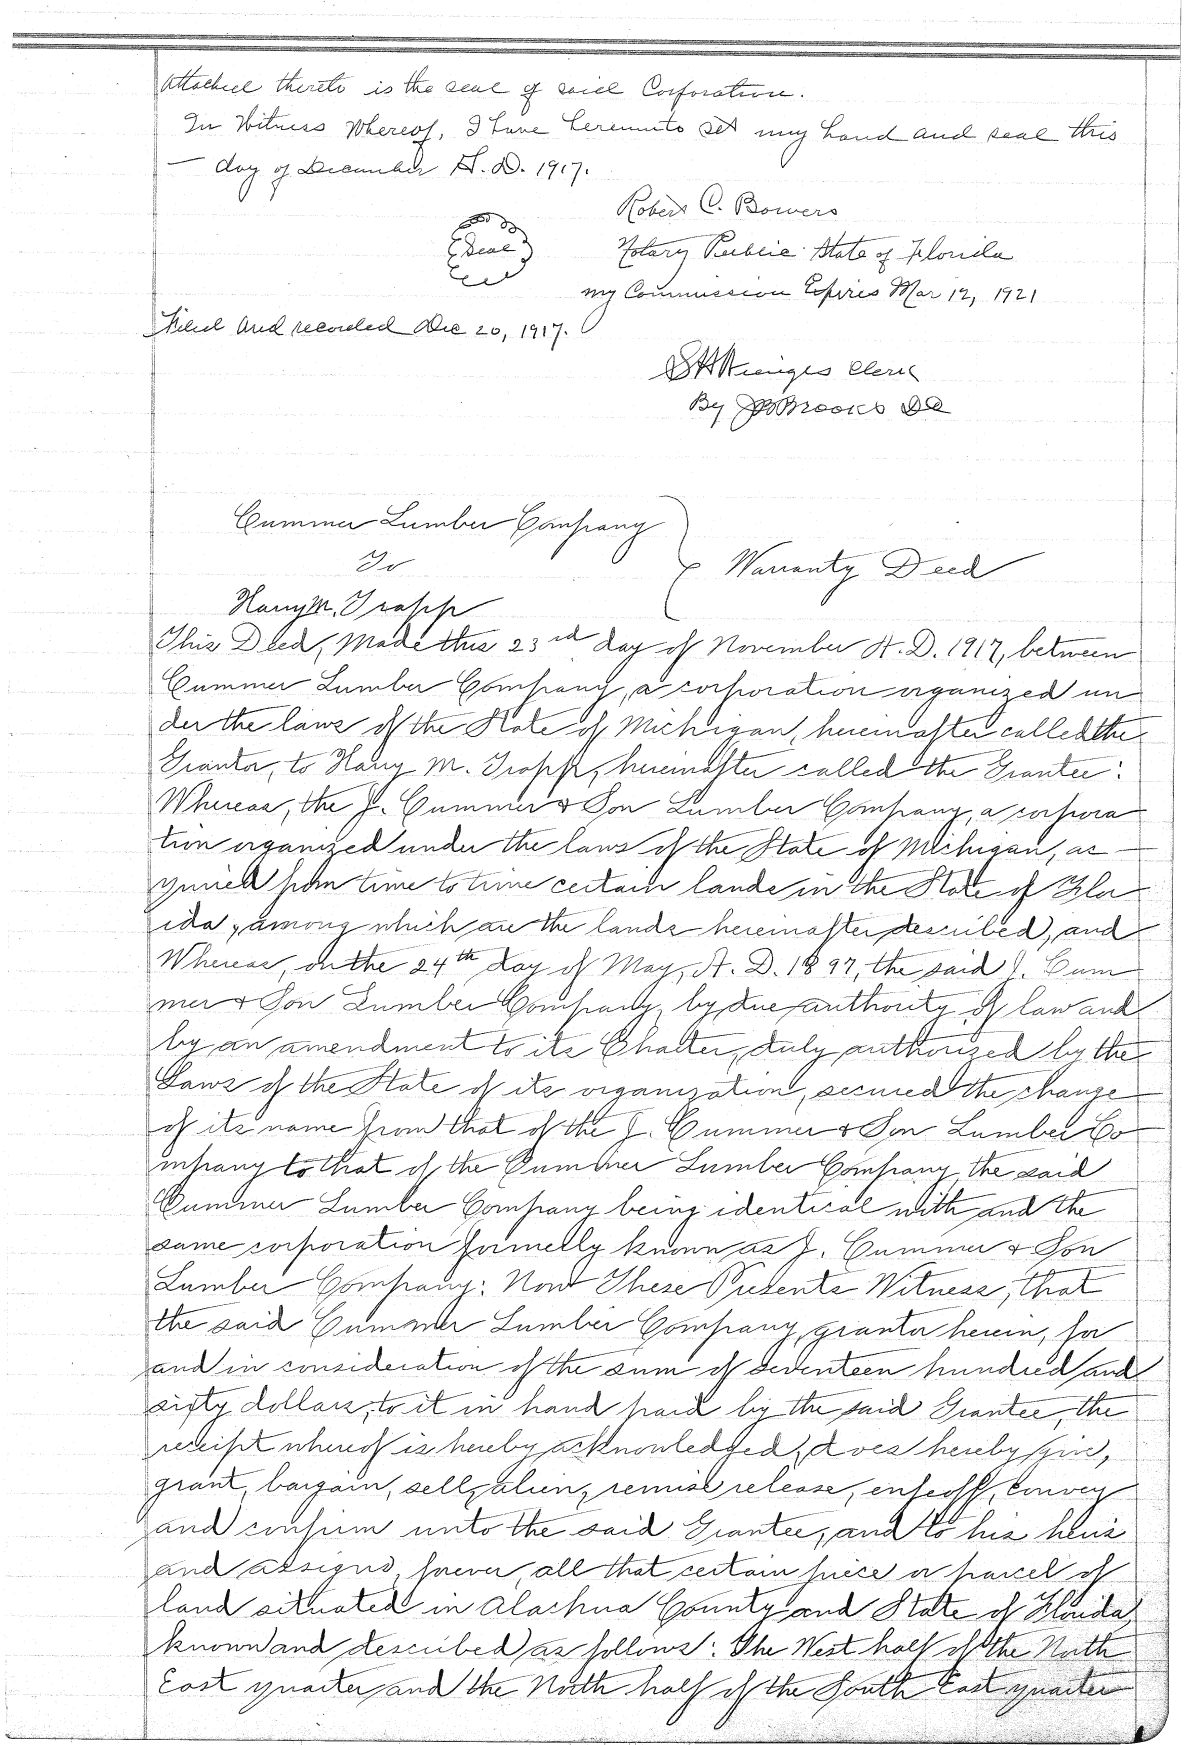 attached thereto is the seal of said Corporation.
In Witness Whereof, I have hereunto set my hand and seal this
— day of December A. D. 1917.
Robert C. Bowers
(Seal)
Notary Public State of Florida
my Commission Expires Mar 12, 1921
Filed and recorded Dec 20, 1917.
S H Wienges Clerk
By Brooks D C
Cummer Lumber Company
To
Warranty Deed
Harry M. Trapp
This Deed, Made this 23rd day of November A. D. 1917, between
Cummer Lumber Company, a corporation organized un
der the laws of the State of Michigan, hereinafter called the
Grantor, to Harry M. Trapp, hereinafter called the Grantee:
Whereas, the J. Cummer & Son Lumber Company, a corpora
tion organized under the laws of the State of Michigan, ac
quired from time to time certain lands in the State of Flor
ida, among which are the lands hereinafter described, and
Whereas, on the 24th day of May, A. D. 1897, the said J. Cum
mer & Son Lumber Company, by due authority of law and
by an amendment to its Charter, duly authorized by the
Laws of the State of its organization, secured the change
of its name from that of the J. Cummer & Son Lumber Co
mpany to that of the Cummer Lumber Company, the said
Cummer Lumber Company being identical with and the
same corporation formelly known as J. Cummer & Son
Lumber Company: Now These Presents Witness, that
the said Cummer Lumber Company, grantor herein, for
and in consideration of the sum of seventeen hundred and
sixty dollars, to it in hand paid by the said Grantee, the
receipt whereof is hereby acknowledged, does hereby give,
grant, bargain, sell, alien, remise release, enfeoff, convey
and confirm unto the said Grantee, and to his heirs
and assigns, forever, all that certain piece or parcel of
land situated in Alachua County and State of Florida,
known and described as follows: The West half of the North
East quarter and the North half of the South East quarter